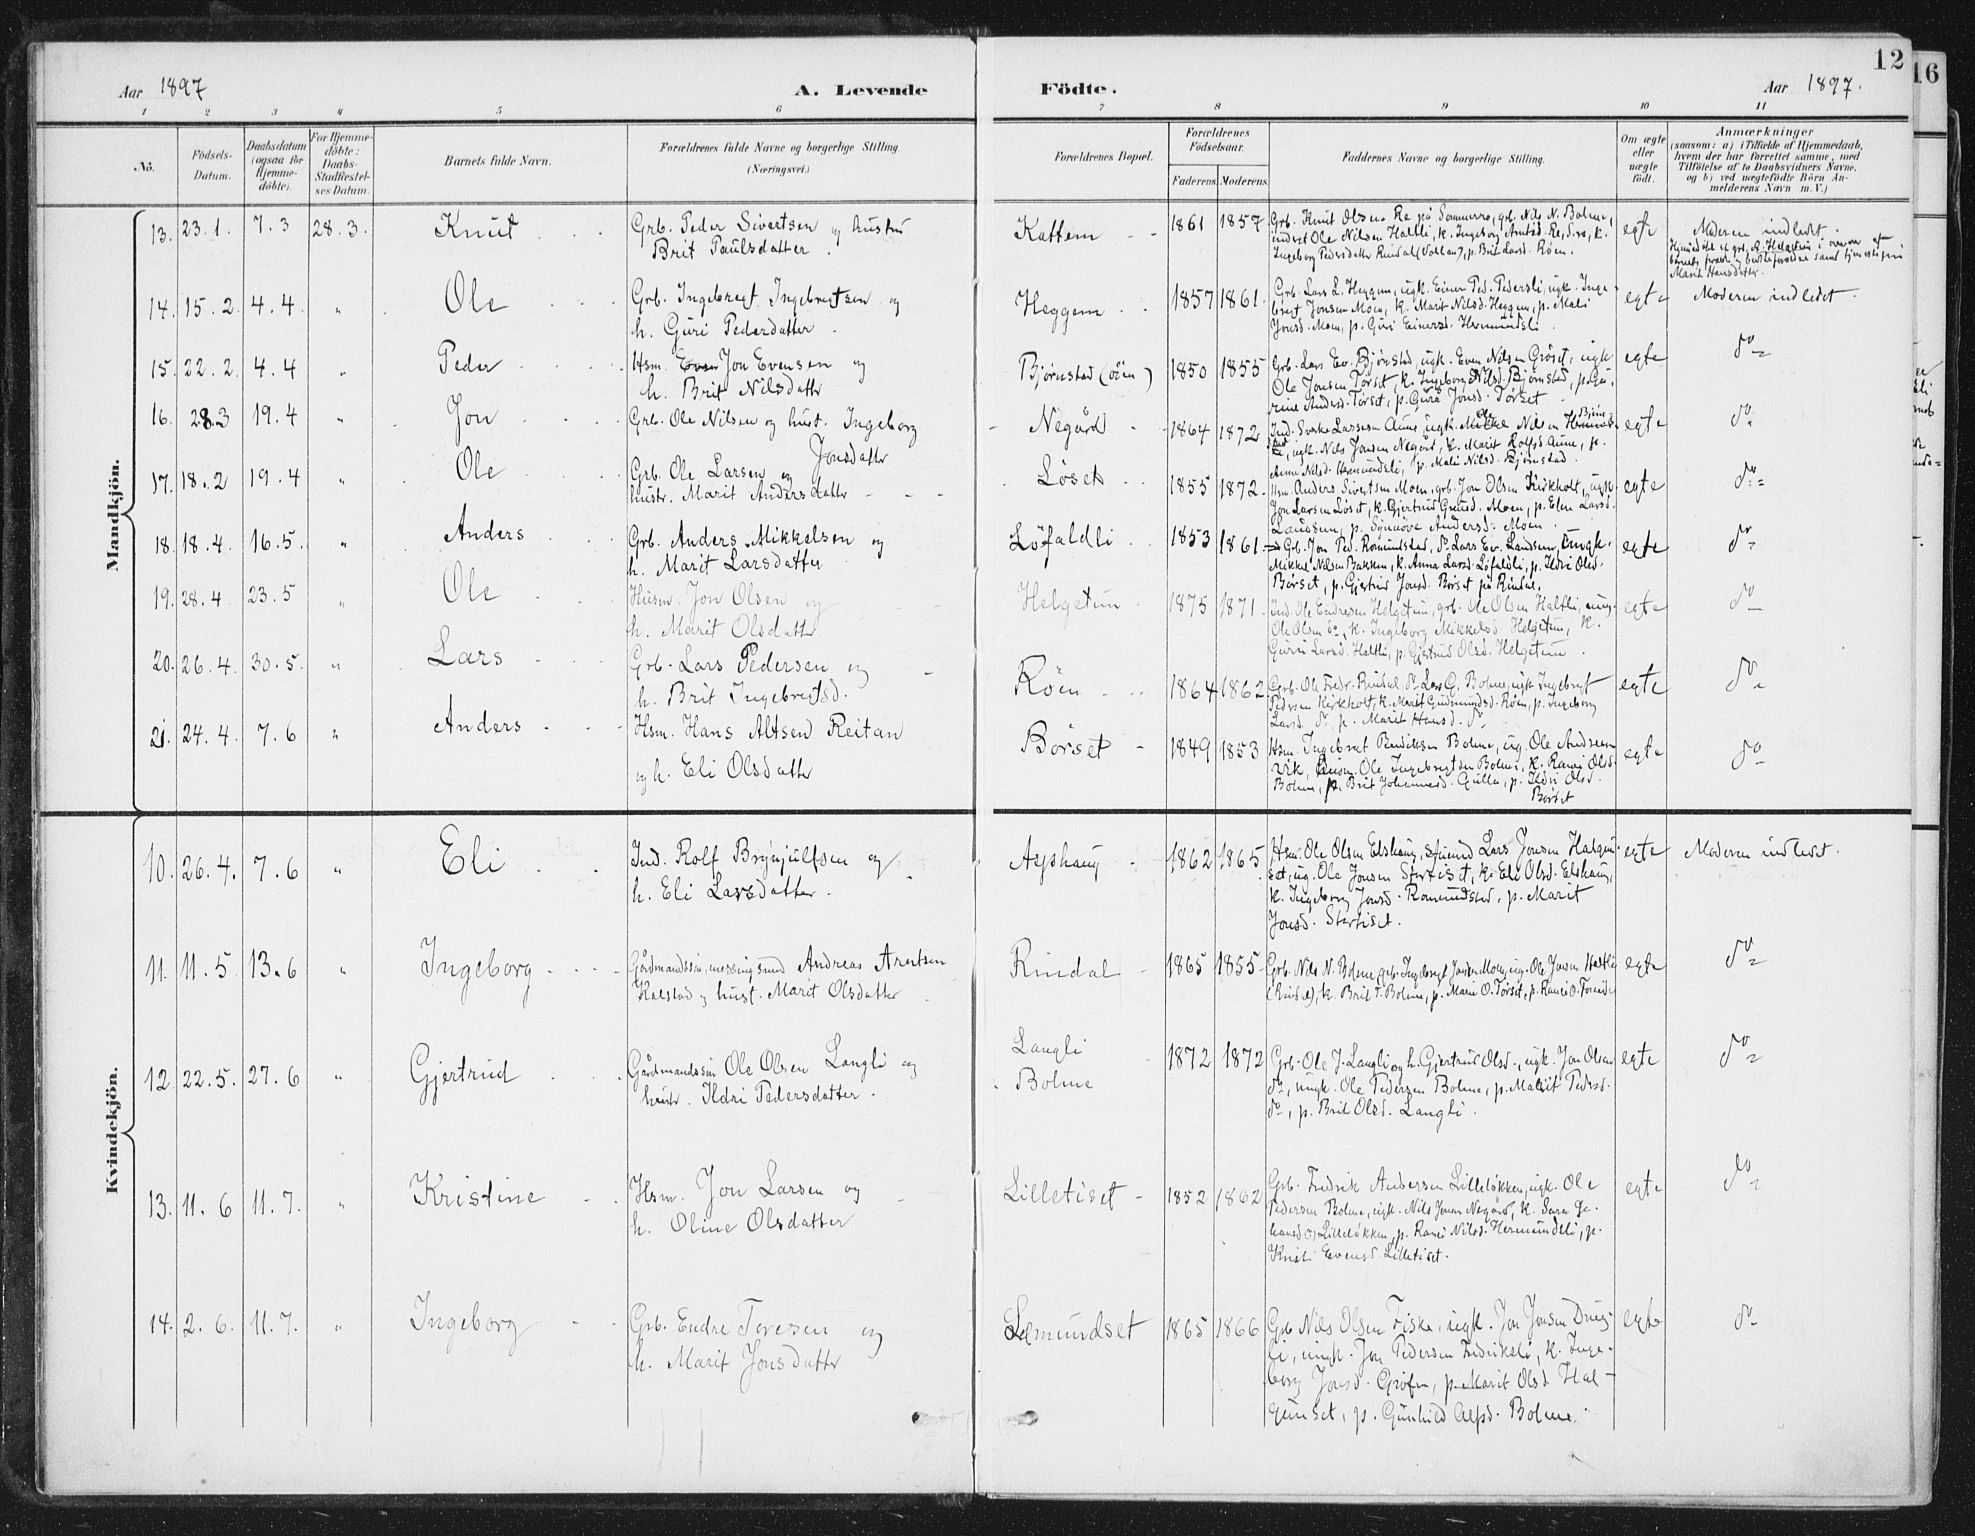 Aar 1897
A. Levende
Födte.
Aar 1897.
12
16
1 2 3 4 5 6 7 8 9 10 11
No.
Födsels-
Datum.
Daabsdatum
(ogsaa for
Hjemme-
döbte).
For Hjemme-
döbte:
Daabs-
Stadfæstel-
ses Datum.
Barnets fulde Navn.
Forældrenes fulde Navne og borgerlige Stilling
(Næringsvei.)
Forældrenes Bopæl.
Forældrenes
Födselsaar.
Faderens Moderens
Faddernes Navne og borgerlige Stilling.
Om ægte
eller
uægte
födt.
Anmærkninger
(saasom: a) i Tilfælde af Hjemmedaab,
hvem der har forrettet samme, med
Tilföielse af to Daabsvidners Navne.
og b) ved uægtefödte Börn An-
melderens Navn m. V.)
Mandkjön.
13. 23.1. 7.3 28.3. Knut
Grb. Peder Sivertsen og hustru
Brit Paulsdatter.
Kattem 1861 1857
Grb. Knut Olsen Re på Sommerro, grb. Nils N. Bolme,
inderst Ole Nilsen Haltli, k. Ingeborg
Ingeborg Pedersdatter Rindal
egte Moderen indledet.
Marit Hansdatter.
14. 15.2. 4.4. " Ole
Grb. Ingebregt Ingebregtsen og
h. Guri Pedersdatter.
Heggem 1857 1861.
Grb. Lars L. Heggem, ugk. Einer Ped. Pedersli, ugk. Inge-
bregt Jonsen Moen, k. Marit Nilsd. Heggem, p. Mali
Jonsd. Moen, p. Guri Einersd. Hermundsli.
egte Moderen indledet.
15. 22.2. 4.4 " Peder
Hsm. Jon Evensen og
h. Brit Nilsdatr
Bjørnstad (øien) 1850 1855
Grb. Lars Ev. Bjørnstad, ugk. Even Nilsen Grøset, ugk
Ole Jonsen Torset, k. Ingeborg Nilsd. Bjørnstad, p. Ka-
rine Andersd. Torset, p. Guri Jonsd. Torset
egte do
16. 28.3 19.4 " Jon
Grb. Ole Nilsen og hust. Ingeborg
Jonsdatter
Negård 1864 1872
Nils Jonsen Negård, k. Marit Rolfsd. Aune, p.
Anne Nilsd. Hermundsli, p. Mali Nilsd. Bjørnstad.
egte do
17. 18.2 19.4 " Ole
Grb. Ole Larsen og
hustr. Marit Andersdatter
Løset 1855 1872
Hsm. Anders Sivertsen Moen, grb. Jon Olsen Kirkholt, ugk.
Jon Larsen Løset, k. Gjertrud Moen, p. Elen Larsd.
Landsem, p. Synnøve Andersd. Moen.
egte do
18. 18.4. 16.5. " Anders
Grb. Anders Mikkelsen og
h. Marit Larsdatter
Löfaldli 1853 1861
Grb. Jon Ped. Romundstad, do Lars Ev. Landsem, ungk.
Mikkel Nilsen Bakken, k. Anna Larsd. Løfaldli, p. Ildri Olsd.
Børset, p. Gjertrud Jonsd. Børset på Rindal.
egte do
19. 28.4 23.5 " Ole
Husm. Jon Olsen og
h. Marit Olsdatter
Helgetun 1875 1871
Ind. Ole Endresen Helgetun, grb. Ole Olsen Haltli, ung.
Ole Olsen do, k. Ingeborg Mikkelsd. Helgetun, k.
Guri Larsd. Haltli, p. Gjertrud Olsd. Helgetun.
egte do
20. 26.4. 30.5. " Lars
Grb. Lars Pedersen og
h. Brit Ingebregtsd.
Röen 1864 1862
Grb. Ole Fredr. Rindal, do Lars G. Bolme, ugk Ingebregt
Pedersen Kirkholt, k. Marit Gudmundsd. Røen, p. Ingeborg
Larsd. do, p. Marit Hansd. do
egte do
21. 24.4. 7.6 " Anders
Hsm. Hans Altsen Reitan
og h. Eli Olsdatter
Börset 1849 1853
Hsm. Ingebregt Bendiksen Bolme, ug. Ole Andersen
Vik, Ole Ingebregtsen Bolme, k. Randi Olsd.
Bolme, p. Brit Johannesd. Gulla, p. Ildri Olsd.
Børset
egte do
Kvindekjön.
10. 26.4. 7.6 " Eli
Ind. Rolf Brynjulfsen og
h. Eli Larsdatter.
Aspshaug 1862 1865
Hsm. Ole Olsen Elshaug, Lars Jonsen Halgun-
set, ug. Ole Jonsen Stortiset, k. Eli Olsd. Elshaug,
k. Ingeborg Jonsd. Romundstad, p. Marit
Jonsd. Stortiset.
egte Moderen indledet.
11. 11.5 13.6 " Ingeborg
Gårdmandssøn, messingsmed Andreas Arntsen
Kalstad og hust. Marit Olsdatter
Rindal 1865 1855
Grb. Nils N. Bolme, grb. Ingebregt Jonsen Moen, ug. Ole Jonsen Haltli
(Rindal), k. Brit T. Bolme, p. Marie O. Torset, p. Randi O.
egte do
12. 22.5. 27.6 " Gjertrud
Gårdmandssøn Ole Olsen Langli og
hustr. Ildri Pedersdatter.
Langli
Bolme 1872 1872
Grb. Ole J. Langli og h. Gjertrud Olsd., ugk. Jon Olsen
do, ungk. Ole Pedersen Bolme, p. Marit Pedersd.
do, p. Brit Olsd. Langli.
egte do
13. 11.6 11.7. " Kristine
Hsm. Jon Larsen og
h. Oline Olsdatter
Lilletiset 1852 1862
Grb. Fredrik Andersen Lilleløkken, ugk. Ole
Pedersen Bolme, ugk. Nils Jonsen Negård, k. Sara Jo-
hansd (?) Lilleløkken, p. Randi Nilsd. Hermundsli, p.
Kristi Evensd. Lilletiset.
egte do
14. 2.6. 11.7. " Ingeborg
Grb. Endre Toresen og
h. Marit Jonsdatter
Læmundset 1865 1866
Grb Nils Olsen Fiske, ugk. Jon Jonsen Drug-
li, ungk. Jon Pedersen Fredriksli, k. Inge-
borg Jonsd. Grøfta, p. Marit Olsd Hal-
gunset, p. Gunhild Bolme.
egte do